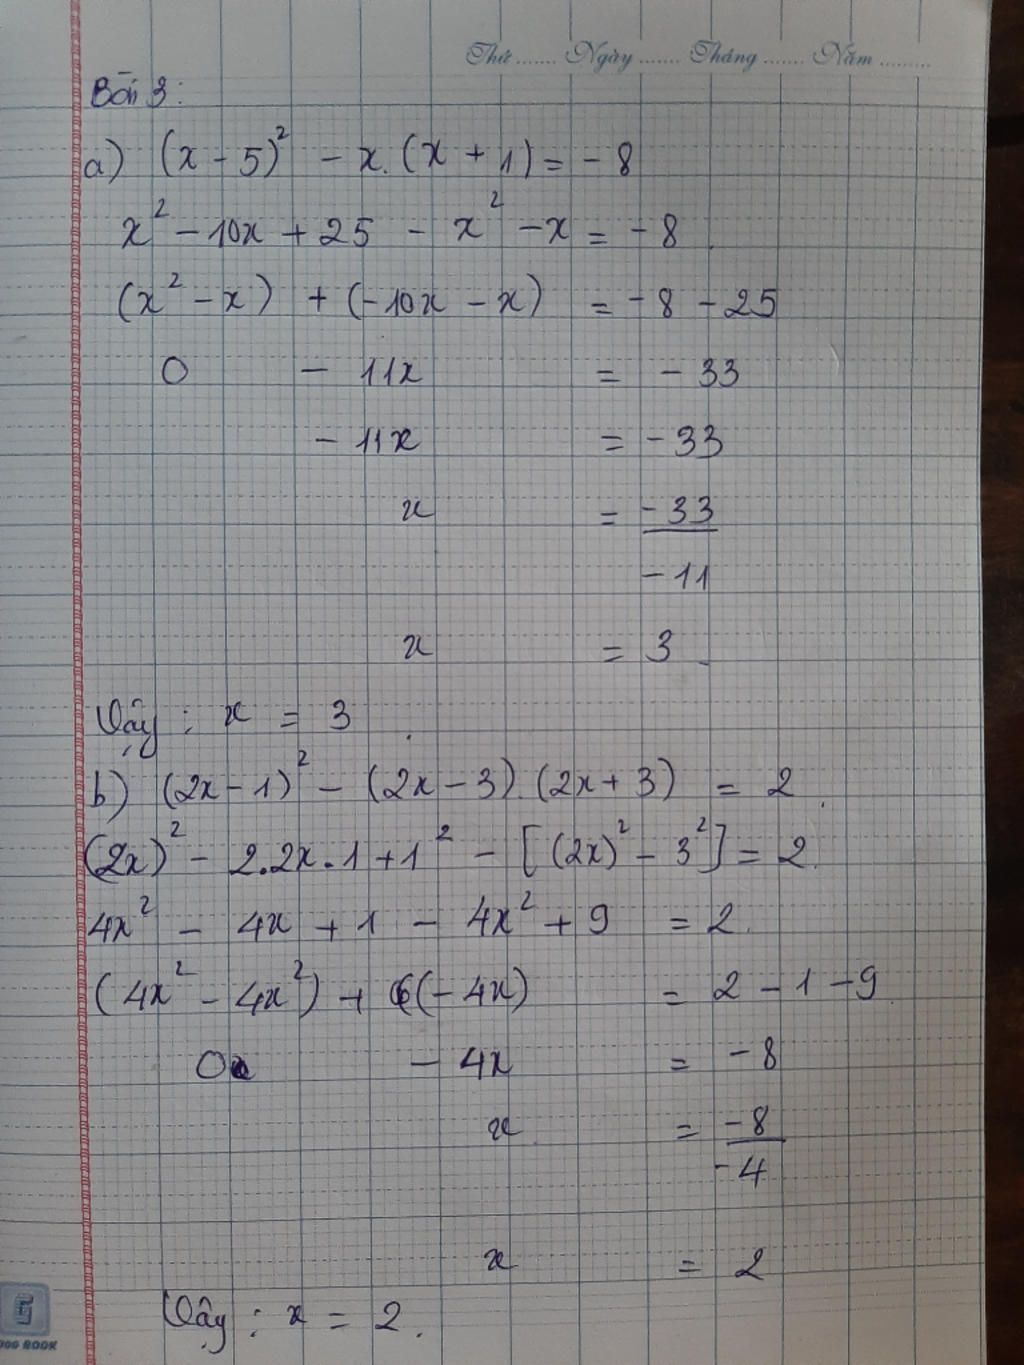 Thứ ....... Ngày ....... Tháng ....... Năm .........
Bài 3:
a) (x - 5)² - x.(x + 1) = - 8
x² - 10x + 25 - x² - x = - 8
(x² - x) + (-10x - x) = - 8 - 25
0 - 11x = - 33
- 11x = - 33
x = - 33
- 11
x = 3
Vậy : x = 3
b) (2x - 1)² - (2x - 3).(2x + 3) = 2
(2x)² - 2.2x.1 + 1² - [(2x)² - 3²] = 2
4x² - 4x + 1 - 4x² + 9 = 2
(4x² - 4x²) + (- 4x) = 2 - 1 - 9
0 - 4x = - 8
x = - 8
- 4
x = 2
Vậy : x = 2.
BOOK